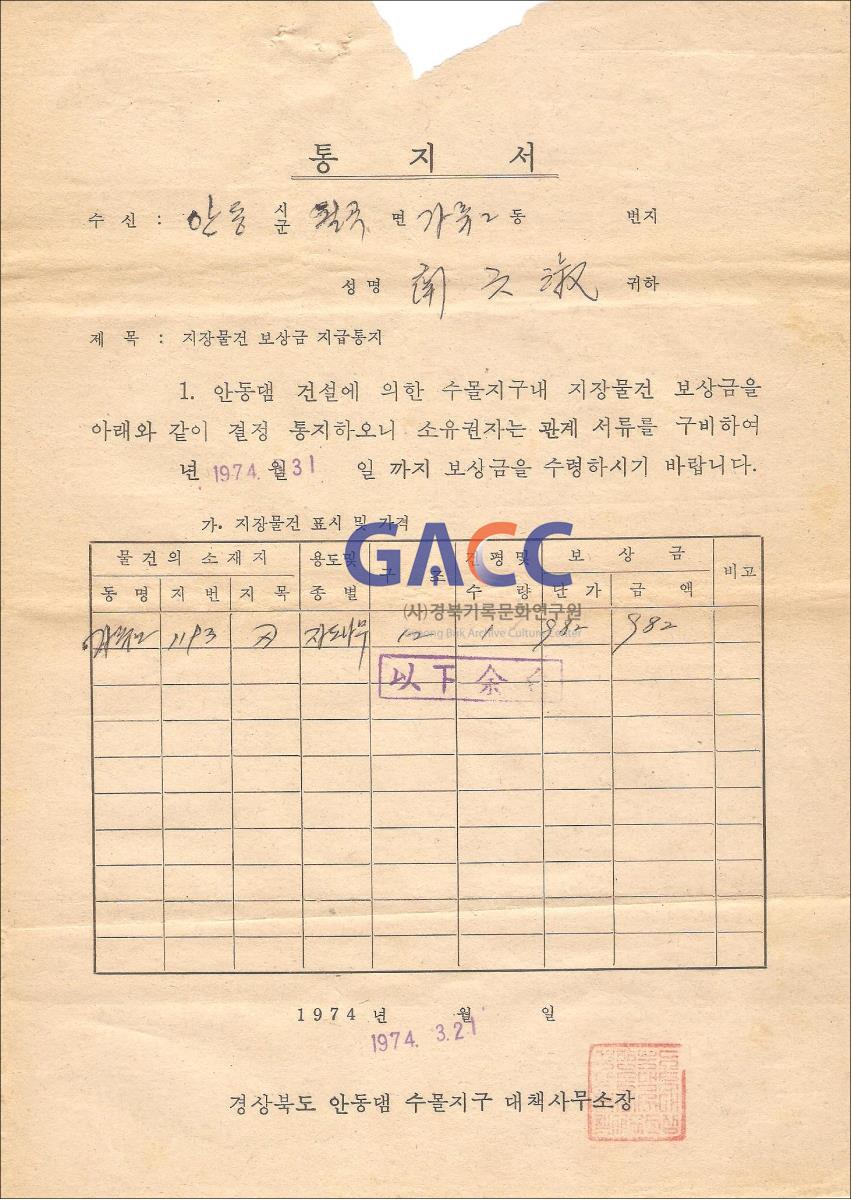 통 지 서
수 신 : 안동 시 군 월곡 면 가류2 동 번지
성 명 귀하
제 목 : 지장물건 보상금 지급통지
1. 안동댐 건설에 의한 수몰지구내 지장물건 보상금을
아래와 같이 결정 통지하오니 소유권자는 관계 서류를 구비하여
년 1974. 월 31 일 까지 보상금을 수령하시기 바랍니다.
가. 지장물건 표시 및 가격
GACC
물 건 의 소 재 지 용도및 구 조 건평및 보 상 금 비고
동 명 지 번 지 목 종 별 수 량 단 가 금 액
(사)경북기록문화연구원
Gyeong Buk Archive Culture Center
가류2 1193 자도나무 1 982 982
以下余
1974 년 월 일
1974. 3.21
경상북도 안동댐 수몰지구 대책사무소장